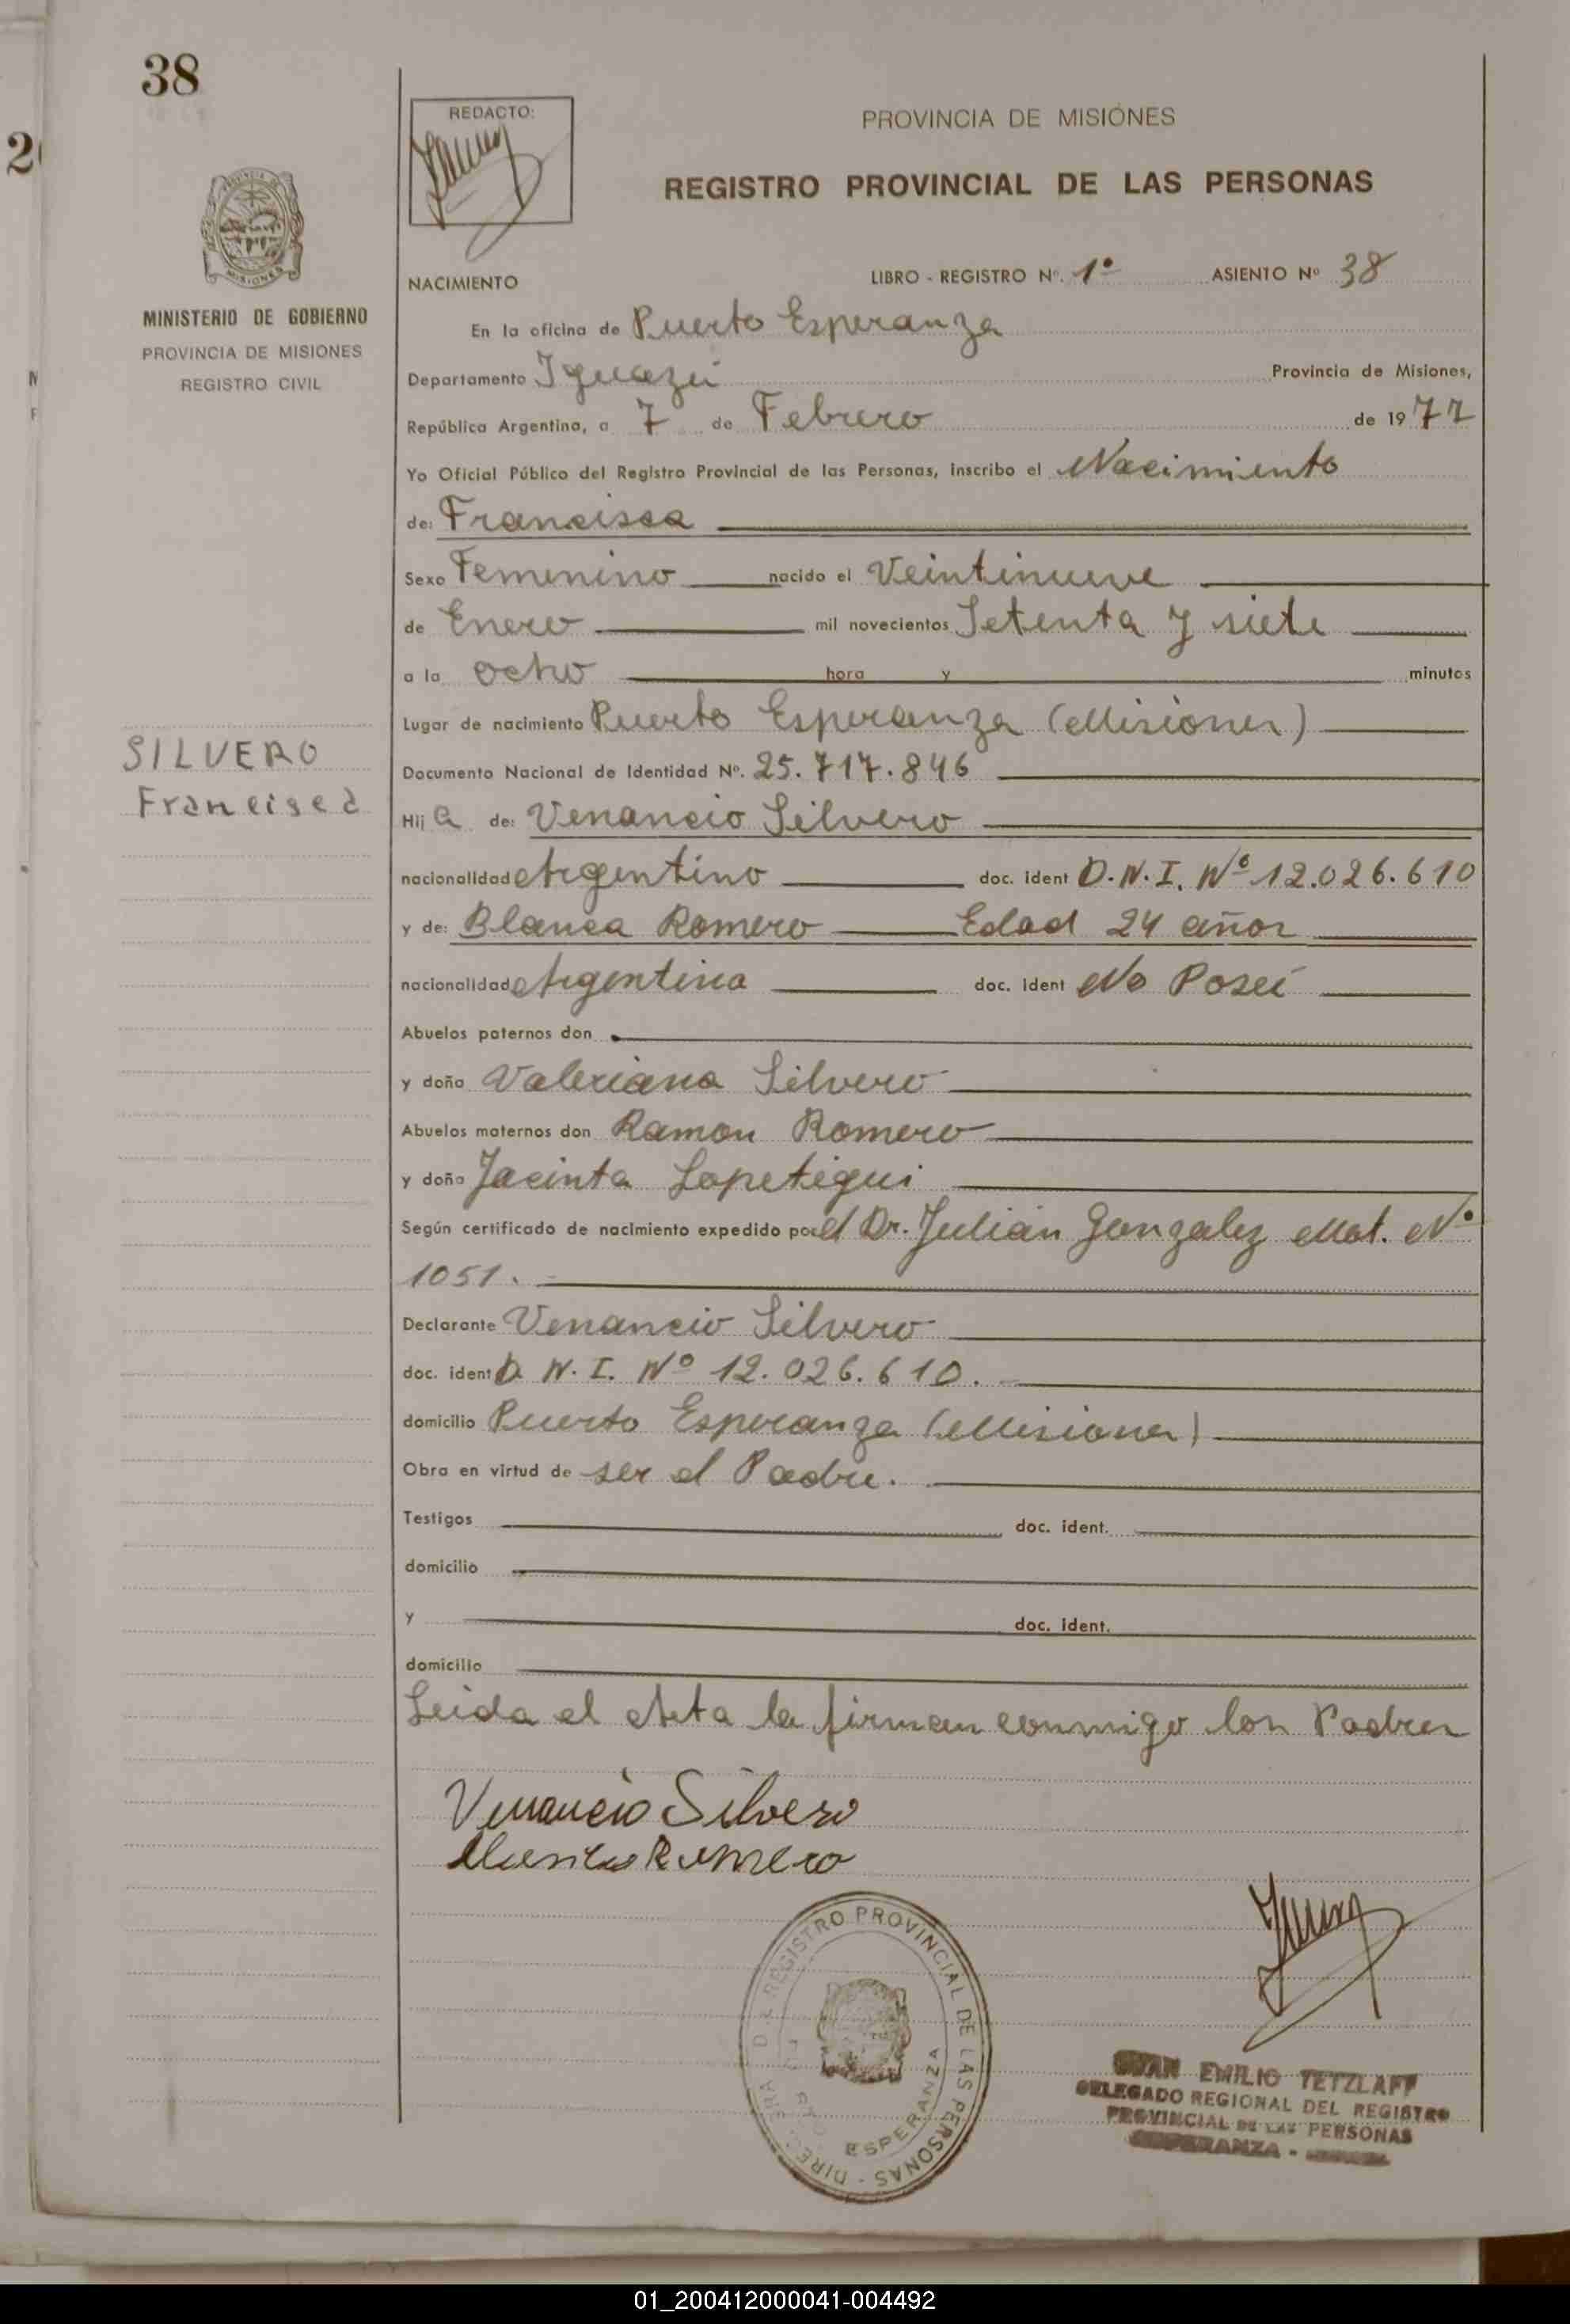 38
REDACTO:
PROVINCIA DE MISIONES
REGISTRO PROVINCIAL DE LAS PERSONAS
MINISTERIO DE GOBIERNO
PROVINCIA DE MISIONES
REGISTRO CIVIL
NACIMIENTO LIBRO - REGISTRO Nº. 1º ASIENTO Nº 38
En la oficina de Puerto Esperanza
Departamento Iguazú Provincia de Misiones,
República Argentina, a 7 de Febrero de 1977
Yo Oficial Público del Registro Provincial de las Personas, inscribo el Nacimiento
de: Francisca
Sexo Femenino nacido el Veintinueve
de Enero mil novecientos Setenta y siete
a la ocho hora y minutos
Lugar de nacimiento Puerto Esperanza (Misiones)
SILVERO
Francisca
Documento Nacional de Identidad Nº. 25.717.846
Hij a de: Venancio Silvero
nacionalidad Argentino doc. ident D.N.I. Nº 12.026.610
y de: Blanca Romero Edad 24 años
nacionalidad Argentina doc. ident No Poseé
Abuelos paternos don
y doña Valeriana Silvero
Abuelos maternos don Ramon Romero
y doña Jacinta Lopetegui
Según certificado de nacimiento expedido por el Dr. Julián Gonzalez Mat. Nº
1051.
Declarante Venancio Silvero
doc. ident D.N.I. Nº 12.026.610.
domicilio Puerto Esperanza (Misiones)
Obra en virtud de ser el Padre.
Testigos doc. ident.
domicilio
y doc. ident.
domicilio
Leida el Acta la firman conmigo los Padres
Venancio Silvero
Romero
REGISTRO PROVINCIAL DE LAS PERSONAS
ESPERANZA
EMILIO TETZLAFF
DELEGADO REGIONAL DEL REGISTRO
PROVINCIAL DE LAS PERSONAS
ESPERANZA -
01_200412000041-004492